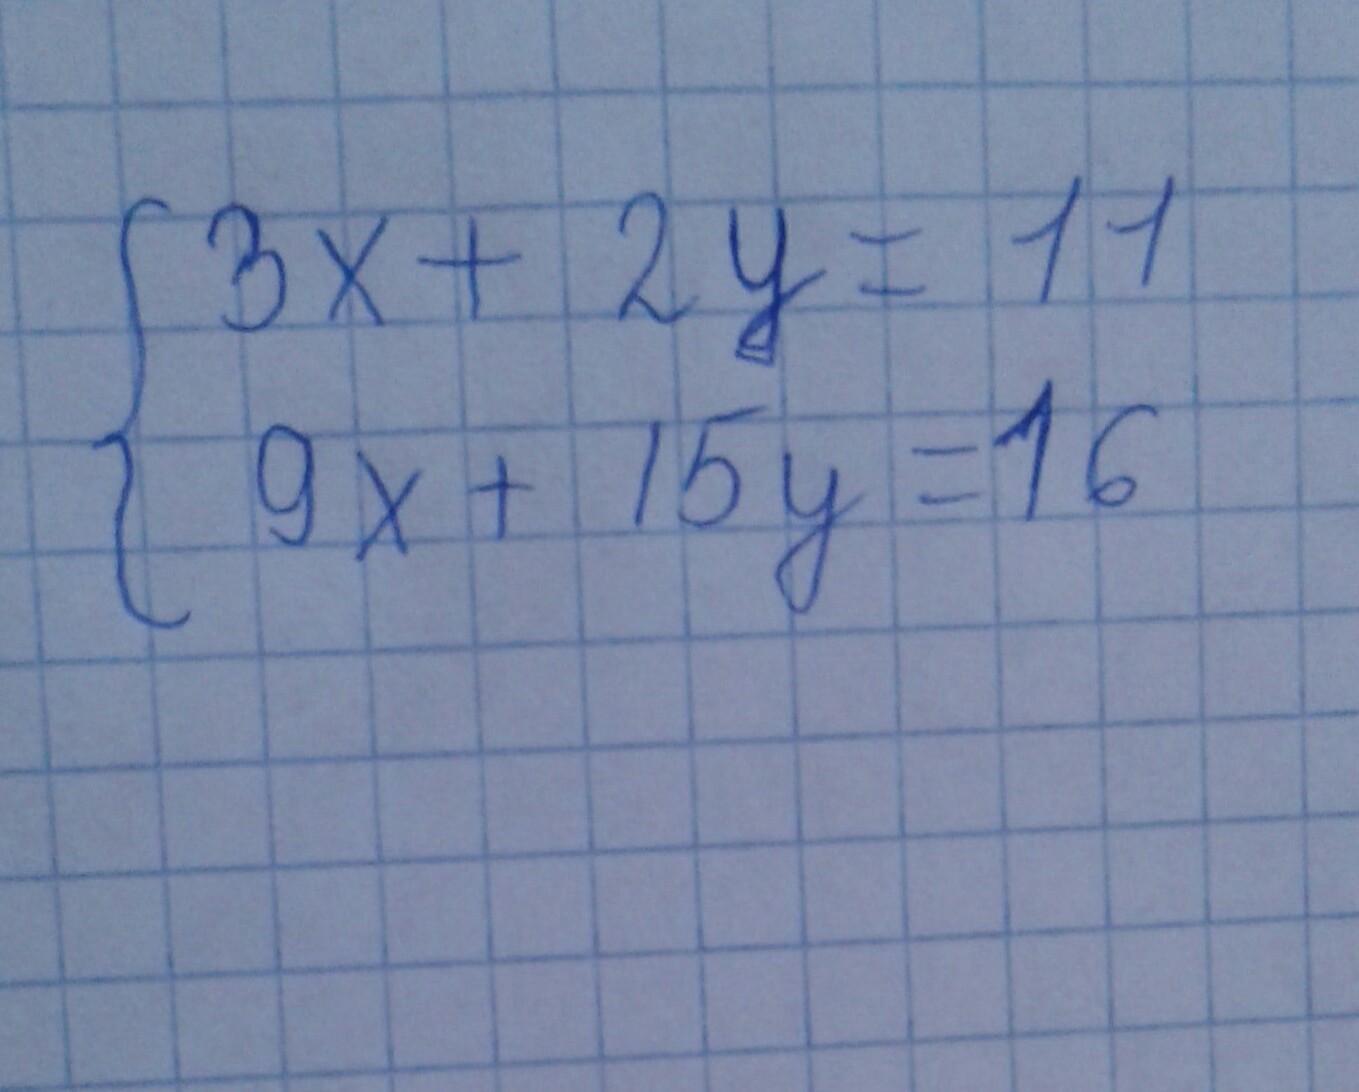 3x + 2y = 11
9x + 15y = 16